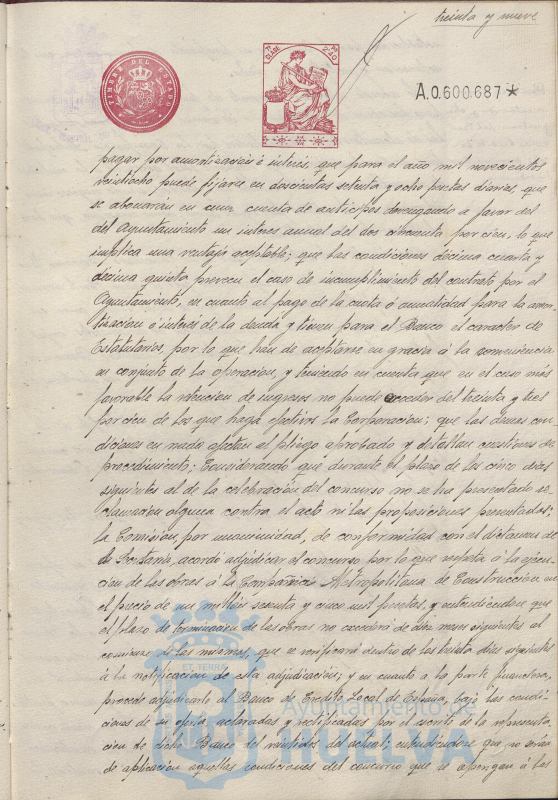 treinta y nueve
TIMBRE DEL ESTADO
A.0.600.687*
pagar por amortización é interés, que para el año mil novecientos
veintiocho puede fijarse en doscientas setenta y ocho pesetas diarias, que
se abonarán en una cuenta de anticipos devengando a favor del
del Ayuntamiento un interés anual del dos cincuenta por cien, lo que
implica una ventaja aceptable; que las condiciones décima cuarta y
décima quinta preveen el caso de incumplimiento del contrato por el
Ayuntamiento, en cuanto al pago de la cuota ó anualidad para la amor-
tización é interés de la deuda y tienen para el Banco el caracter de
Estatutarios, por lo que han de aceptarse en gracia á la conveniencia
en conjunto de la operación, y teniendo en cuenta que en el caso más
favorable la retención de ingresos no puede exceder del treinta y tres
por cien de los que haga efectivos la Corporación; que las demas con-
diciones en nada afectan al pliego aprobado y detallan cuestiones de
procedimiento; Considerando que durante el plazo de los cinco dias
siguientes al de la celebración del concurso no se ha presentado re-
clamación alguna contra el acto ni las proposiciones presentadas;
la Comisión, por unanimidad, de conformidad con el dictamen de
la Secretaría, acordó adjudicar el concurso por lo que respecta á la ejecu-
ción de las obras á la Compañia Metropolitana de Construcción en
el precio de un millón sesenta y cinco mil pesetas, y entendiendose que
el plazo de terminación de las obras no excederá de diez meses siguientes al
comienzo de las mismas, que se verificará dentro de los treinta dias siguientes
á la notificación de esta adjudicación; y en cuanto a la parte financiera,
procede adjudicarlo al Banco de Crédito Local de España, bajo las condi-
ciones de su oferta, aclaradas y rectificadas por el escrito de la representa-
ción de dicho Banco del veintidos del actual; entendiendose que no serán
de aplicación aquellas condiciones del concurso que se opongan á las
ET TERRÆ
Ayuntamiento de
HUELVA